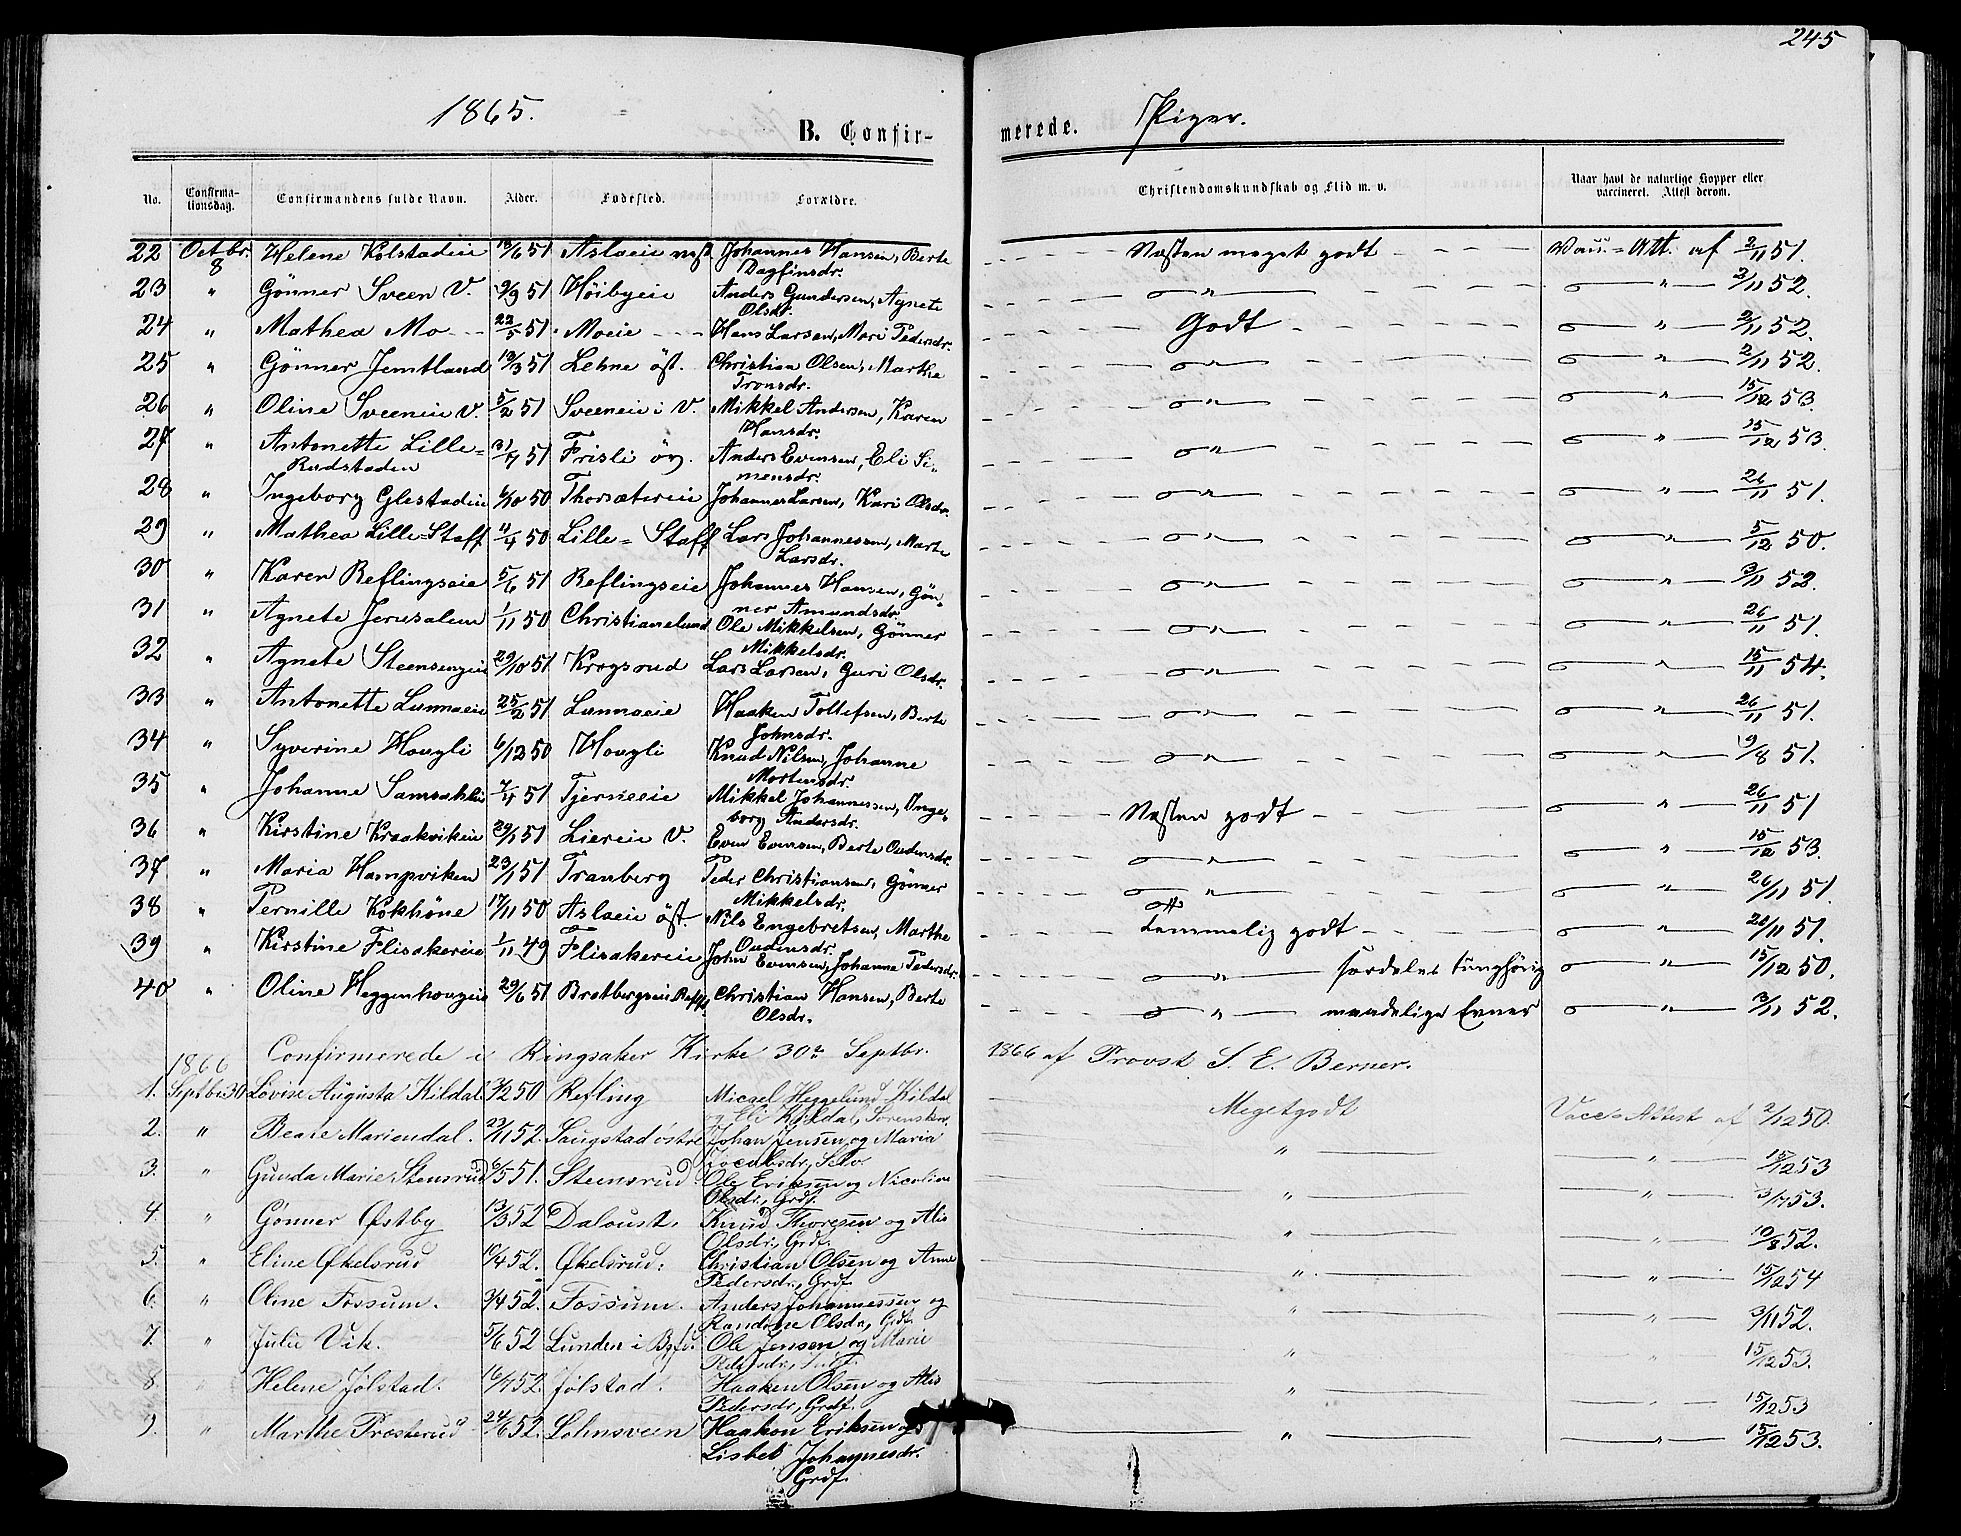 245
1865. B. Confir- merede. Piger.
No. Confirma-tionsdag. Confirmandens fulde Navn. Alder. Fødested. Forældre. Christendomskundskab og Flid m. v. Naar havt de naturlige Kopper eller vaccineret. Attest derom.
22 Octbr. 8 Helene Kolstadeie 51 Aslaeie vest Johannes Hansen, Berte Næsten meget godt Vac. = Att. af 2/11 51.
Dagfinsdr.
23 " Gønner Sveen V. 9/9 51 Høibyeie Anders Gundersen, Agnete " 2/11 52.
Olsdr.
24 " Mathea Mo 22/5 51 Moeie Hans Larsen, Mari Pedersdr. Godt " 2/11 52.
25 " Gønner Jemtland 19/3 51 Lehne øst. Christian Olsen, Marthe " " 2/11 52.
Tronsdr.
26 " Oline Sveeneie V. 5/2 51 Sveeneie i V. Mikkel Andersen, Karen " " 15/12 53.
Hansdr.
27 " Antonette Lille= 51 Frisli øv. Anders Evensen, Eli Si= " " 15/12 53.
Rudstaden mensdr.
28 " Ingeborg Glestadeie 6/10 50 Thorsætereie Johannes Larsen, Kari Olsdr. " " 26/11 51.
29 " Mathea Lille=Staff 11/4 50 Lille=Staff Lars Johannessen, Marte " " 5/12 50.
Larsdr.
30 " Karen Reflingseie 5/6 51 Reflingseie Johannes Hansen, Gøn= " " 3/11 52.
ner Amundsdr.
31 " Agnete Jerusalem 1/11 50 Christianelund Ole Mikkelsen, Gønner " " 26/11 51.
Mikkelsdr.
32 " Agnete Steensengeie 29/10 51 Krogsrud Lars Larsen, Guri Olsdr. " " 15/11 54.
33 " Antonette Lunnaeie 25/2 51 Lunnaeie Haaken Tollefsen, Berte " " 26/11 51.
Johnsdr.
34 " Syverine Hougli 6/12 50 Hougli Knud Nilsen, Johanne " " 9/8 51.
Mortensdr.
35 " Johanne 7/4 51 Tjerneeie Mikkel Johannessen, Inge= Næsten godt " 26/11 51
borg Andersdr.
36 " Kirstine Kraakvikeie 29/1 51 Liereie V. Even Evensen, Berte Oudensdr. " " 15/12 53.
37 " Maria Hampviken 23/1 51 Tranberg Peder Christiansen, Gønner " " 26/11 51.
Mikkelsdr.
38 " Pernille Kokhöne 17/11 50 Aslaeie öst. Nils Engebretsen, Marthe Temmelig godt " 51.
Oudensdr.
39 " Kirstine Flisakereie 1/11 49 Flisakereie John Evensen, Johanne Pedersdr. " saerdeles tunghörig " 15/12 50.
40 " Oline Heggenhougeie 29/6 51 Bratbergseie Christian Hansen, Berte " maadelige Evner " 3/11 52.
Olsdr.
Confirmerede i Ringsaker Kirke 30te Septbr. 1866 af Provst S. E. Berner.
1866
1. Septbr 30 Lovise Augusta Kildal 50 Refling Micael Heggelund Kildal Megetgodt Vacc. Attest af 2/12 50.
og Eli Kildal, Sorenskr.
2. " Beate Mariendal. 23/11 52. Saugstad østre Johan Jensen og Maria " " 15/12 53
Jocubsdr., Selv.
3. " Gunda Marie Stensrud 6/5 51. Steensrud Ole Eriksen og Nicoline " " 53.
Olsdr., Grdf.
4. " Gønner Østby 13/3 52 Daloust. Knud Thoresen og Alis " " 10/8 52.
Olsdr., Grdf.
5. " Eline Økelsrud 10/4 52. Økelsrud. Christian Olsen og Anne " " 15/12 54
Pedersdr., Grdf.
6. " Oline Fossum. 3/4 52. Fossum. Anders Johannessen og " " 3/11 52.
Randine Olsdr., Grdf.
7. " Julie Vik. 5/6 52 Lunden i Ole Jensen og Marie " " 15/12 53.
Pedersdr.,
8. " Helene Jølstad. 16/7 52. Jølstad. Haaken Olsen og Alis " " 15/12 53
Pedersdr., Grdf.
9. " Marthe Præsterud 24/6 52. Lohnsveen Haakon Eriksen og " " 15/12 53.
Lisbet Johannesdr.
Grdf.